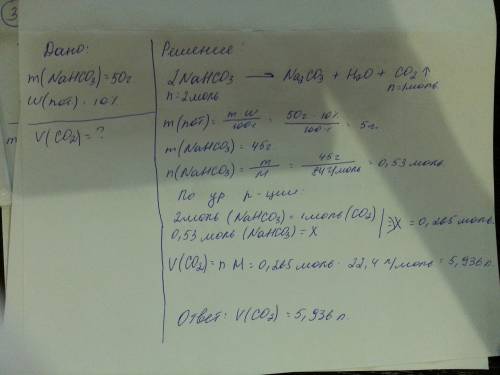 Дано:
m(NaHCO3)=50г.
W(пот)=10%
V(CO2)=?
Решение:
2NaHCO3 → Na2CO3 + H2O + CO2↑
n=2моль n=1моль
m(пот)= m·W/100% = 50г·10%/100% = 5г.
m(NaHCO3)=45г
n(NaHCO3)= m/M = 45г/84г/моль = 0,53 моль
По ур. р-ции:
2моль (NaHCO3)=1моль(CO2)
0,53 моль (NaHCO3)=X
X=0,265моль.
V(CO2)=n M=0,265моль · 22,4 л/моль = 5,936 л.
Ответ: V(CO2)=5,936 л.